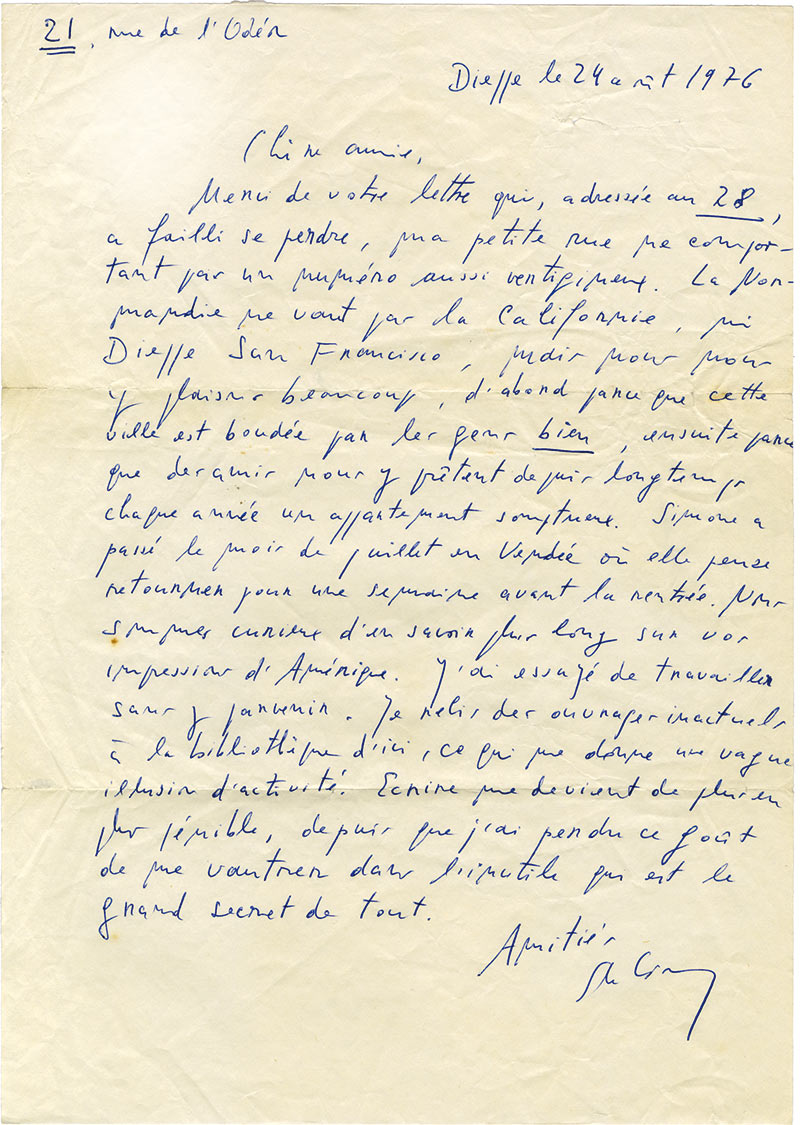 21, rue de l'Odéon
Dieppe le 24 août 1976
Chère amie,
Merci de votre lettre qui, adressée au 28,
a failli se perdre, ma petite rue ne compor-
tant pas un numéro aussi vertigineux. La Nor-
mandie ne vaut pas la Californie, ni
Dieppe San Francisco, mais nous nous
y plaisons beaucoup, d'abord parce que cette
ville est boudée par les gens bien, ensuite parce
que des amis nous y prêtent depuis longtemps
chaque année un appartement somptueux. Simone a
passé le mois de juillet en Vendée où elle pense
retourner pour une semaine avant la rentrée. Nous
sommes curieux d'en savoir plus long sur vos
impressions d'Amérique. J'ai essayé de travailler
sans y parvenir. Je relis des ouvrages inactuels
à la bibliothèque d'ici, ce qui me donne une vague
illusion d'activité. Ecrire me devient de plus en
plus pénible, depuis que j'ai perdu ce goût
de me vautrer dans l'inutile qui est le
grand secret de tout.
Amitiés